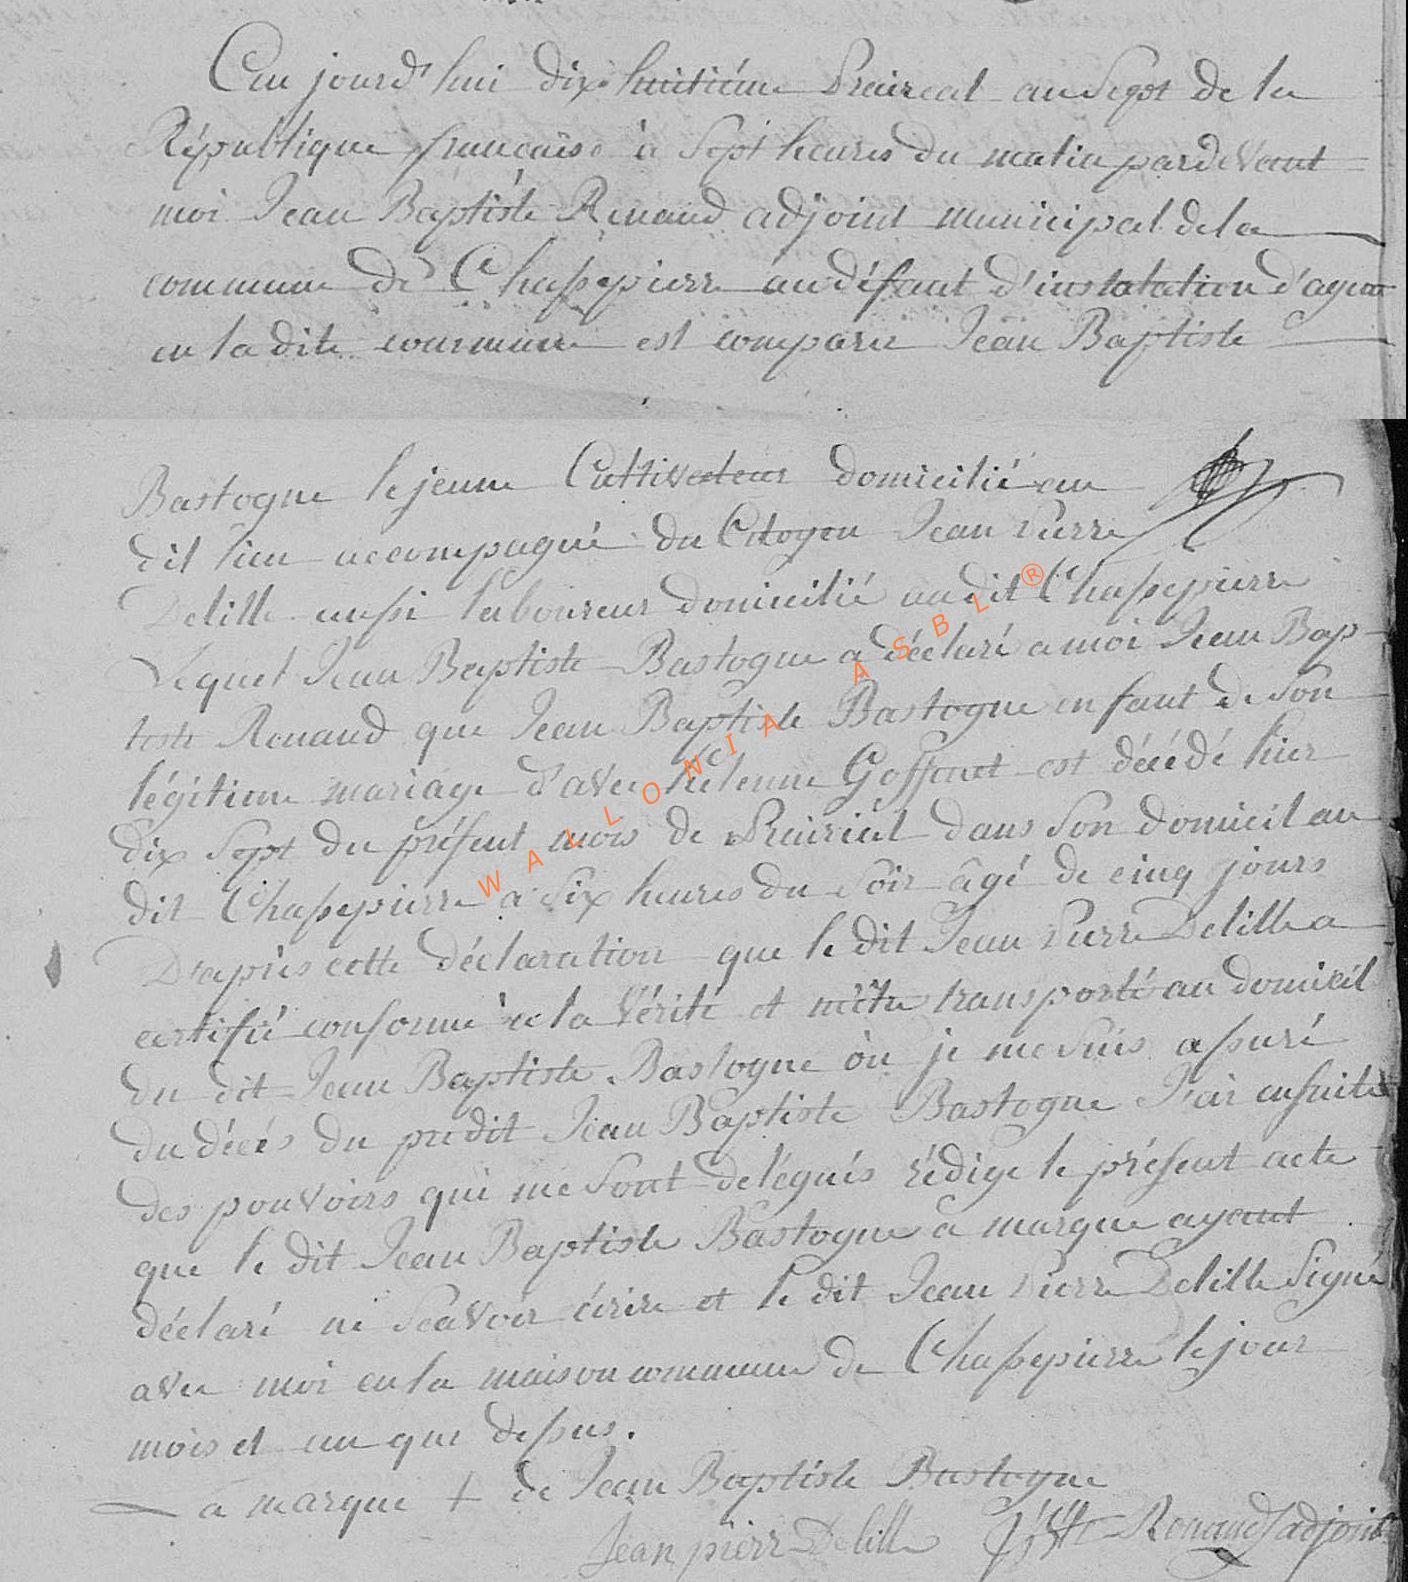 Ceu jourd'hui dix huitiéme Prairéal an Sept de la
République française à Sept heures du matin pardevant
moi Jean Baptiste Renaud adjoint municipal de la
commune de Chassepierre au défaut d'instalation d'agent
en la dite commune est comparu Jean Baptiste
Bastogne le jeune Cultivateur domicilié au
dit lieu accompagné du Citoyen Jean Pierre
Delille aussi laboureur domicilié au dit Chassepierre
Lequel Jean Baptiste Bastogne a déclaré a moi Jean Bap-
tiste Renaud que Jean Baptiste Bastogne enfant de Son
légitime mariage d'avec helenne Goffinet est décédé hier
dix Sept du présent mois de Prairiéal dans Son domicil au
dit Chassepierre a Six heures du Soir âgé de cinq jours
D'après cette déclaration que le dit Jean Pierre Delille a
certifié conforme à la Vérité et m'étu transporté au domicil
du dit Jean Baptiste Bastogne où je me Suis assuré
du décés du prédit Jean Baptiste Bastogne J'ai ensuite
des pouvoirs qui me Sont delégués rédigé le présent acte
que le dit Jean Baptiste Bastogne a marque ayant
déclaré ne Scavoir écrire et le dit Jean Pierre Delille Signé
avec moi en la maison commune de Chassepierre le jour
mois et an que dessus.
La marque + de Jean Baptiste Bastogne
Jean pierr Delille Renaud adjoint
WALLONIA ASBL ®